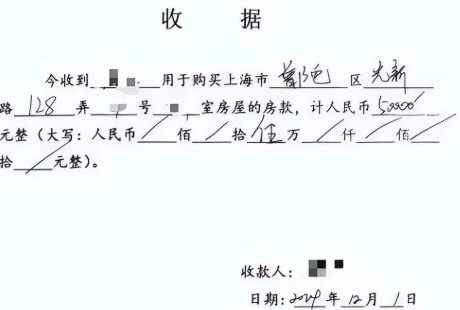 收 据
今收到 用于购买上海市 普陀 区 光新
路 128 弄 号 室房屋的房款，计人民币 50000
元整（大写：人民币 / 佰 / 拾 伍 万 / 仟 / 佰
拾 / 元整）。
收款人：
日期：2024 年 12 月 1 日